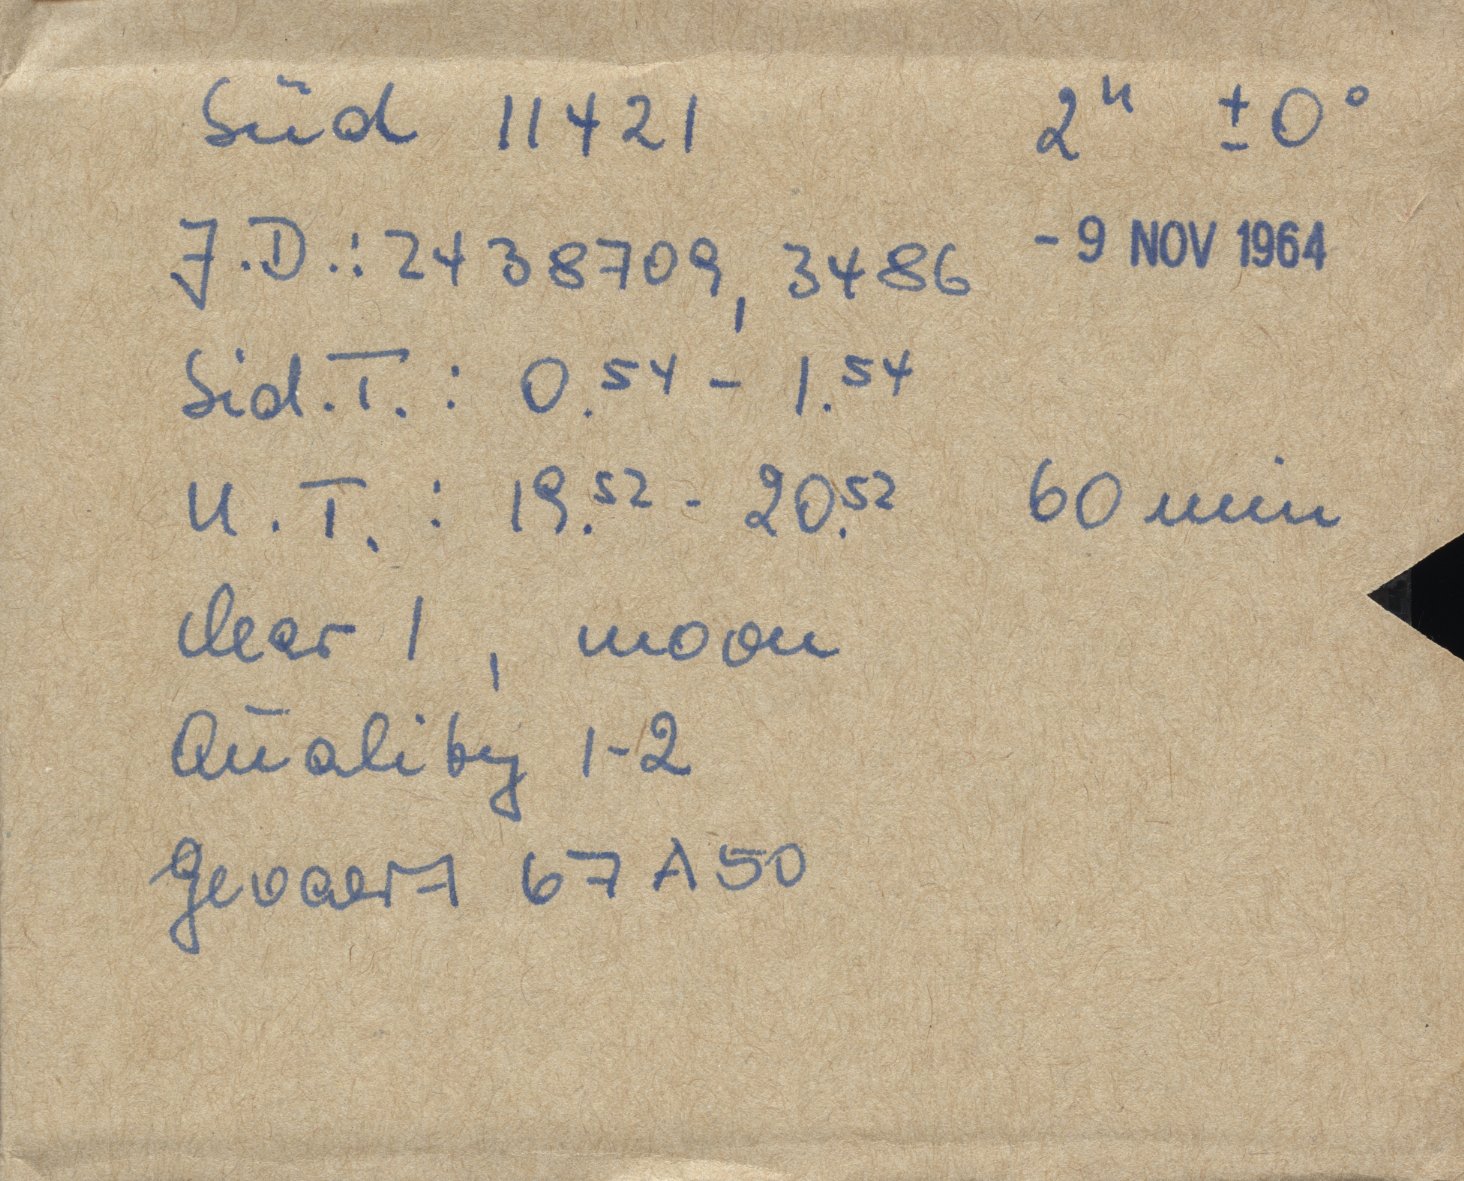 Süd 11421 2ʰ ±0°
J.D.: 2438709,3486 -9 NOV 1964
Sid.T.: 0.⁵⁴ - 1.⁵⁴
U.T.: 19.⁵² - 20.⁵² 60 min
clear 1, moon
Quality 1-2
Gevaert 67A50